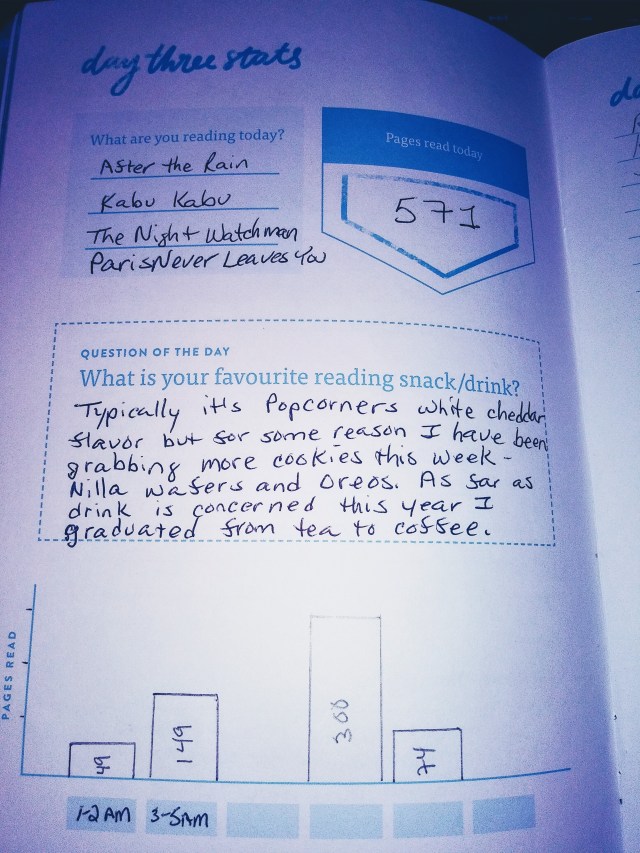 day three stats
What are you reading today?
After the Rain
Kabu Kabu
The Night Watchman
Paris Never Leaves You
Pages read today
571
QUESTION OF THE DAY
What is your favourite reading snack/drink?
Typically it's Popcorners white cheddar
flavor but for some reason I have been
grabbing more cookies this week -
Nilla wafers and Oreos. As far as
drink is concerned this year I
graduated from tea to coffee.
PAGES READ
49
149
300
74
1-2 AM
3-5AM